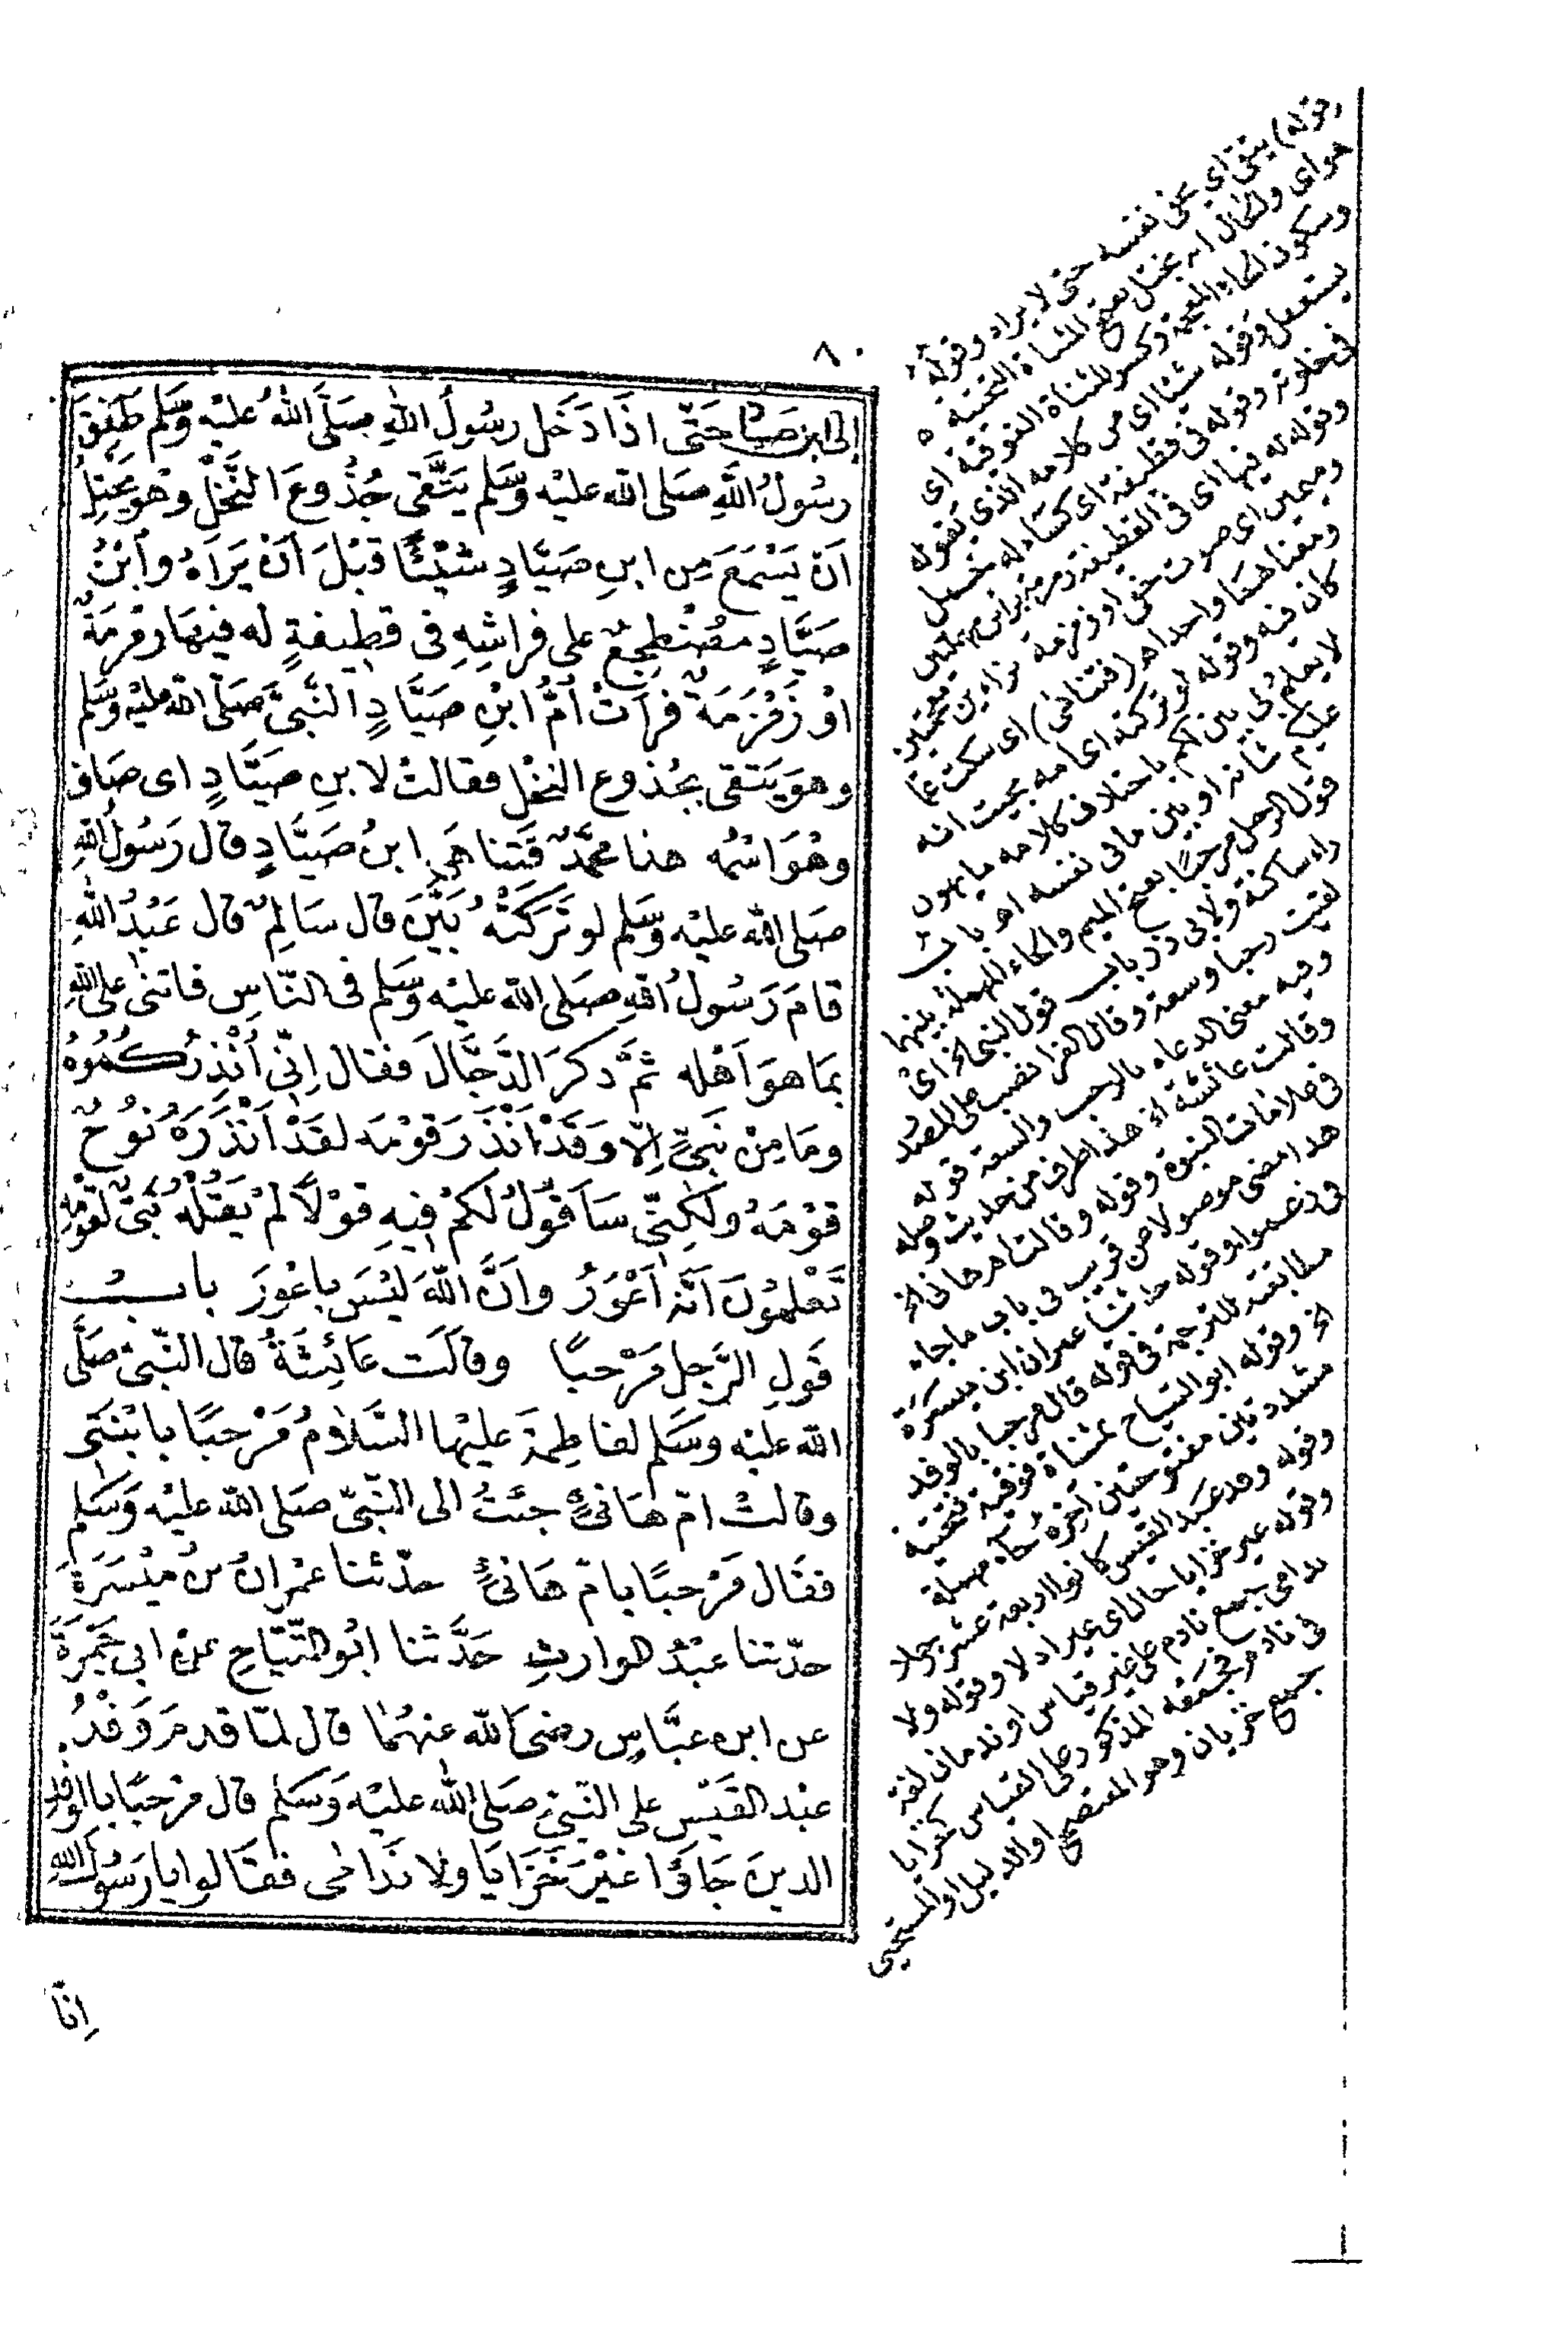 ٨٠
الى ابن صياد حَتّى اذَا دَخَل رسُولُ اللهِ صَلَّى اللهُ عليْه وَسَلم طَفِقَ
رسُولُ اللهِ صَلى الله عليْه وَسَلم يَتَّقى جُذُوعَ النَّخْل وهُو يَخْتِلُ
اَنْ يَسْمَعَ مِن ابنِ صَيَّادٍ شَيْئًا قبْلَ اَنْ يَرَاهُ وابْنُ
صَيَّادٍ مضْطجعٌ على فراشِهِ فى قطِيفةٍ له فيهَا رمْرمَةٌ
اوْ زَمْزَمَةٌ فرأتْ أمُّ ابْنِ صَيَّادٍ النَّبىَّ صَلّى الله عليْه وَسَلم
وهوَ يَتَقى بجُذوع النخْل فقالتْ لابنِ صيَّادٍ اى صَاف
وهْوَ اسْمُه هذا محمَّدٌ فَتَناهَى ابنُ صَيَّادٍ قال رَسُولُ اللهِ
صَلى الله عليْه وَسَلم لو تَرَكَتْهُ بَيَّنَ قال سَالِمٌ قال عَبْدُ اللهِ
قامَ رَسُولُ اللهِ صَلى الله عليْه وَسَلم فى النّاسِ فاثنى على اللهِ
بمَا هوَ اَهْله ثمَّ ذكرَ الدَّجَّالَ فقال اِنّى اُنْذِرُكُمُوهُ
ومَا مِنْ نَبىٍّ اِلّا وَقَدْ اَنْذَرَ قَوْمَه لقَدْ اَنْذَرَهُ نُوحٌ
قوْمَهُ ولَكِنّى سَاَقُولُ لكمْ فِيهِ قوْلاً لمْ يَقُلْهُ نَبىٌّ لقوْمِهِ
تَعْلمُونَ اَنَّهُ اَعْوَرُ واَنَّ اللهَ ليْسَ باعْوَرَ بابُ
قَولِ الرَّجل مَرْحبًا وقالَت عَائِشَةُ قال النّبىّ صَلَّى
الله عليْه وسَلم لفاطِمةَ عليْها السَّلامُ مَرْحبًا بابْنَتى
وقالتْ امّ هَانئٍ جئتُ الى النّبىّ صَلى الله عليْه وَسَلم
فقال مَرْحبًا بامّ هَانئٍ حدّثنا عمْرانُ بنُ ميْسَرَةَ
حدّثنا عبْدُ الوارثِ حَدَّثنا ابُو التَّيّاحِ عنْ ابى جَمْرَةَ
عن ابن عبَّاسٍ رضىَ الله عنهُمَا قال لمّا قدمَ وَفْدُ
عبْد القَيْس على النّبىّ صَلى الله عليْه وَسَلم قال مرْحبًا بالوَفْدِ
الذينَ جَاؤا غيْرَ خَزَايَا ولا نَدَامَى فقالوا يا رَسُولَ اللهِ
اِنّا
(قوله) يتقى اى يخفى نفسه حتى لا يراه وقوله
وسكون الخاء المعجمة وكسر المثناة الفوقية اى
وقوله شيئا اى من كلامه الذى يقوله
فى خلوته وقوله فى قطيفة اى كساء له خمل
ومعناهما واحد اه (فتناهى) اى سكت عما
كان فيه وقوله لو تركته اى امه بحيث انه
لا يعلم بى بين لكم باختلاف كلامه ما يهون
عليكم شأنه او بين ما فى نفسه اه باب
قول الرجل مرحبًا بفتح الميم والحاء المهملة بينهما
راء ساكنة ولابى ذر باب قول النبى الخ اى
لقيت رحبا وسعة وقال الفرا نصب على المصدر
وفيه معنى الدعاء بالرحب والسعة قوله
وقالت عائشة الخ هذا طرف من حديث وصله
فى علامات النبوة وقوله وقالت ام هانى الخ
هذا مضى موصولا من قريب فى باب ما جاء
فى زعموا وقوله حدثنا عمران ابن ميسرة
مطابقته للترجمة فى قوله قال مرحبا بالوفد
الخ وقوله ابو التياح بمثناة فوقية فتحتية
مشددتين مفتوحتين آخره حاء مهملة
وقوله وفد عبد القيس كانوا اربعة عشر رجلا
وقوله غير خزايا حال اى غير اذلا وقوله ولا
ندامى جمع نادم على غير قياس او ندمان لغة
فى نادم فجمعه المذكور على القياس كخزايا
جمع خزيان وهو المفتضح او الذليل او المستحيى